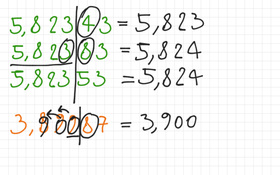 5,823|43 = 5,823
5,823|83 = 5,824
5,823|53 = 5,824
87 = 3,900